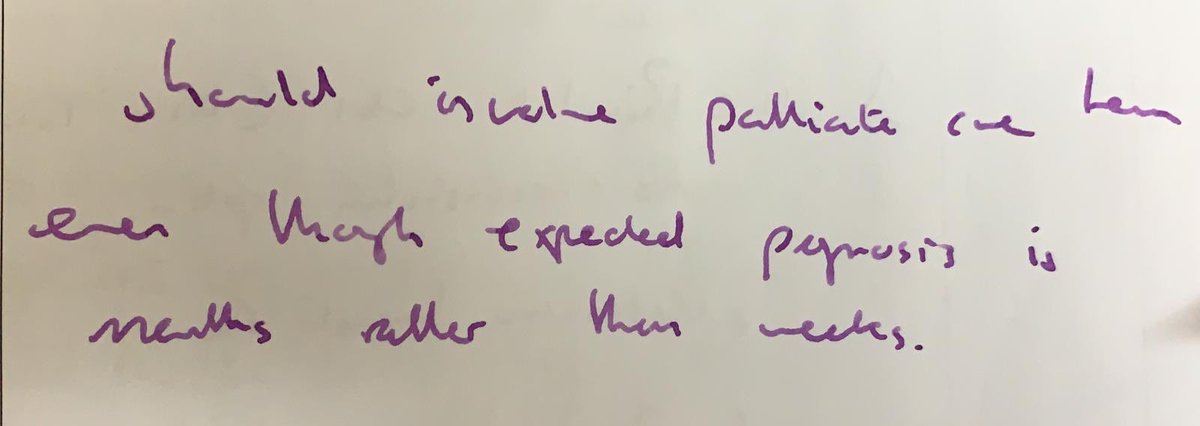 should involve palliate care team
even though expected pognosis is
months rather than weeks.